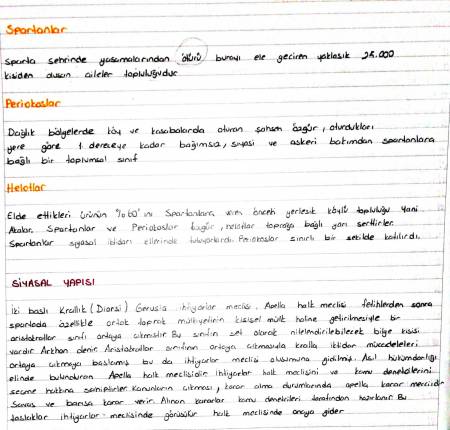 Spartanlar
Sparta şehrinde yaşamalarından ötürü burayı ele geçiren yaklaşık 25.000
kişiden oluşan aileler topluluğudur
Periokoslar
Dağlık bölgelerde köy ve kasabalarda oturan şahsen özgür, oturdukları
yere göre 1. dereceye kadar bağımsız, siyasi ve askeri bakımdan spartanlara
bağlı bir toplumsal sınıf
Helotlar
Elde ettikleri ürünün %60'ını Spartanlara veren önceki yerleşik köylü topluluğu Yani
Akalar. Spartanlar ve Periokoslar özgür, helotlar toprağa bağlı yarı serflerler.
Spartanlar siyasal iktidarı ellerinde tutuyorlardı. Periokoslar sınırlı bir şekilde katılırdı.
SİYASAL YAPISI
İki başlı Krallık (Diarşi) Gerusia ihtiyarlar meclisi. Apella halk meclisi fetihlerden sonra
spartada özellikle ortak toprak mülkiyetinin kişisel mülk haline getirilmesiyle bir
aristokratlar sınıfı ortaya çıkmıştır Bu sınıfın set olarak nitelendirilebilecek bilge kişisi
vardır Arkhon denir Aristokratlar sınıfının ortaya çıkmasıyla kralla iktidar mücadeleleri
ortaya çıkmaya başlamış bu da ihtiyarlar meclisi oluşumuna gidilmiş. Asıl hükümdarlığı
elinde bulunduran Apella halk meclisidir ihtiyarlar halk meclisini ve kamu denetçilerini
seçme hakkına sahiptirler Kanunların çıkması, karar alma durumlarında apella karar merciidir
Savaş ve barışa karar verir. Alınan kararlar kamu denetçileri tarafından hazırlanır Bu
taslaklar ihtiyarlar meclisinde görüşülür halk meclisinde onaya gider